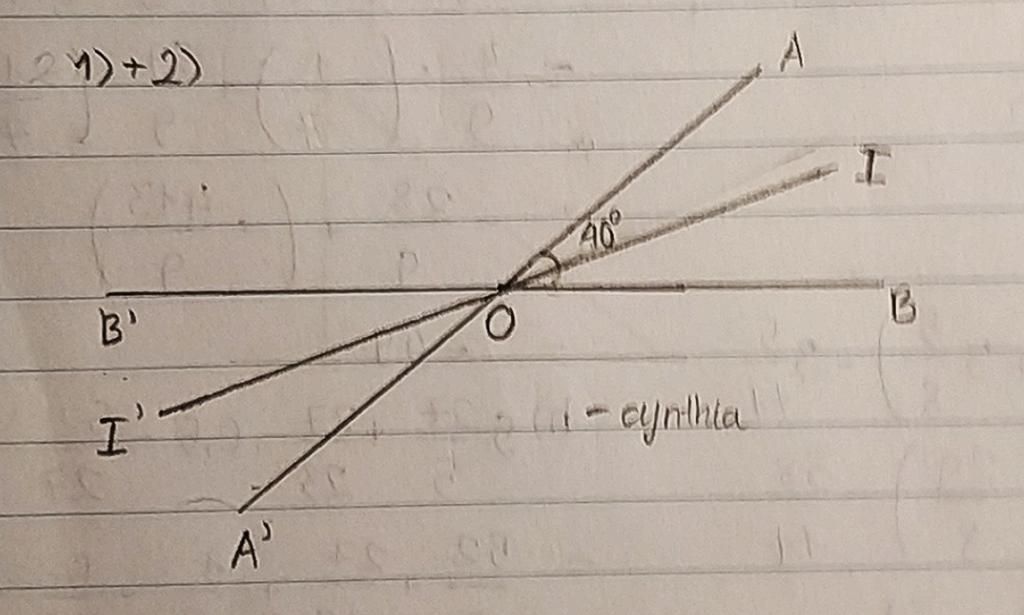 1)+2)
A
I
40°
B'
O
B
I'
1-cynthia
A'